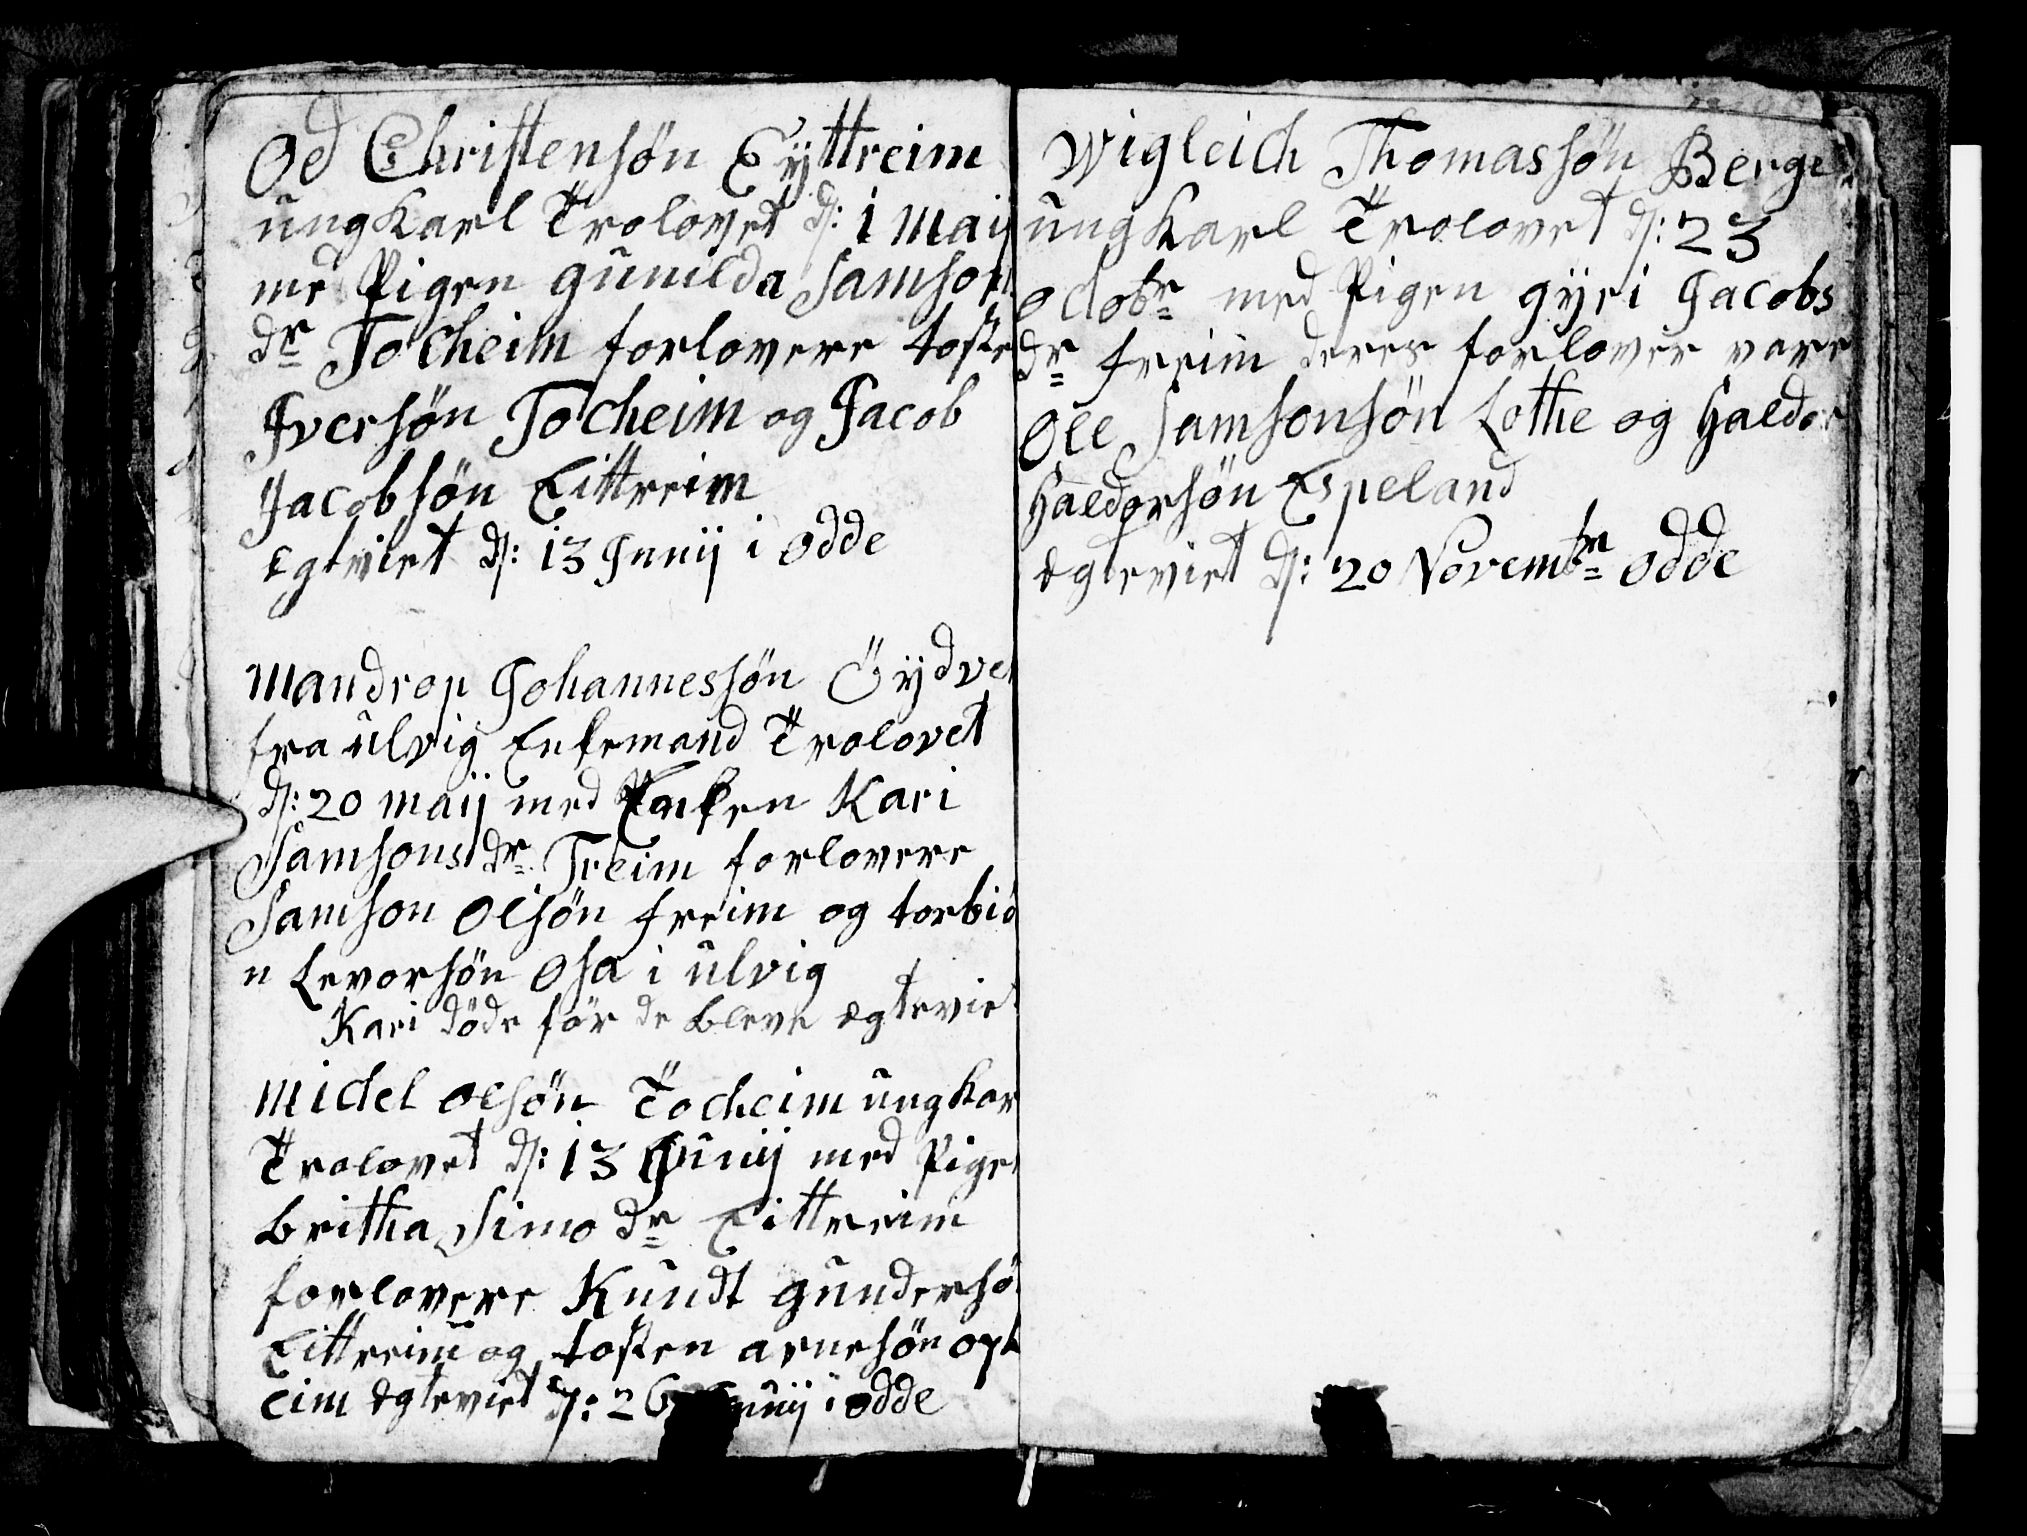 Od Christensön Eÿttreim
ungkarl Trolovet d: 1 Maij
med Pigen gunilda Samsons
dr Tocheim forlovere tosten
Iversön Tocheim og Jacob
Jacobsön Eittreim
Egtviet d: 13 Junij i odde
Mandrop Johannessön Öÿdve
fra ulvig Enkemand Trolovet
d: 20 maij med Enken Kari
Samsons dr Freim forlovere
Samson olsön freim og torbiö
n Levorsön Osa i ulvig
Kari döde för de bleve ægteviet
Michel olsön Tocheim ungkar
Trolovet d: 13 Junij med Pigen
britha Simo dr Eittreim
forlovere Knudt gundersö
Eittreim og tosten arnesön oph
eim ægteviet d: 26 Junij i odde
Wigleich Thomassön Berge
ungkarl Trolovet d: 23
octobr med Pigen gÿri Jacobs
dr freim deres forlover vare
Ole Samsonsön Lothe og Haldor
Haldorsön Espeland
ægteviet d: 20 Novembr odde